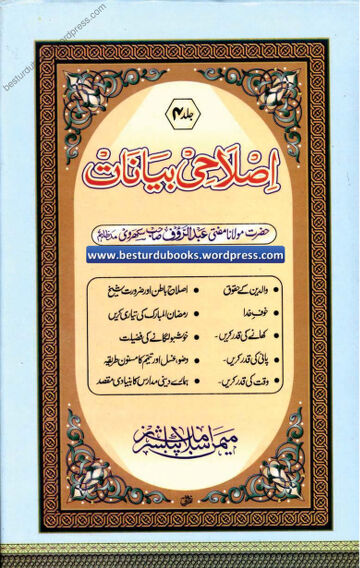 besturdubooks.wordpress.com
جلد ۴
اِصْلَاحِیْ بَیَانَاتْ
حضرت مولانا مفتی عبدالرؤف صاحب سکھروی مدظلہم
www.besturdubooks.wordpress.com
• والدین کے حقوق • اصلاحِ باطن اور ضرورتِ شیخ
• خوفِ خدا • رمضان المبارک کی تیاری کریں
• کھانے کی قدر کریں۔ • خوشبو لگانے کی فضیلت
• پانی کی قدر کریں۔ • وضو، غسل اور تیمم کا مسنون طریقہ
• وقت کی قدر کریں۔ • ہمارے دینی مدارس کا بنیادی مقصد
میمن اسلامک پبلشرز